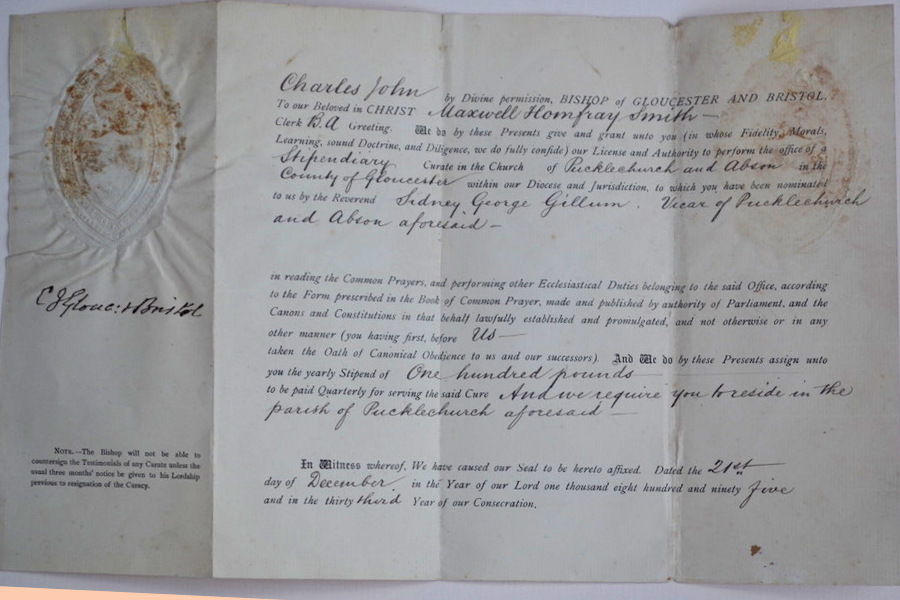 Charles John by Divine permission, BISHOP of GLOUCESTER AND BRISTOL,
To our Beloved in CHRIST Maxwell Homfray Smith —
Clerk B.A Greeting. We do by these Presents give and grant unto you (in whose Fidelity, Morals,
Learning, sound Doctrine, and Diligence, we do fully confide) our License and Authority to perform the office of a
Stipendiary Curate in the Church of Pucklechurch and Abson in the
County of Gloucester within our Diocese and Jurisdiction, to which you have been nominated
to us by the Reverend Sidney George Gillum. Vicar of Pucklechurch
and Abson aforesaid —
in reading the Common Prayers, and performing other Ecclesiastical Duties belonging to the said Office, according
to the Form prescribed in the Book of Common Prayer, made and published by authority of Parliament, and the
Canons and Constitutions in that behalf lawfully established and promulgated, and not otherwise or in any
other manner (you having first, before Us —
taken the Oath of Canonical Obedience to us and our successors). And We do by these Presents assign unto
you the yearly Stipend of One hundred pounds
to be paid Quarterly for serving the said Cure And we require you to reside in the
parish of Pucklechurch aforesaid —
In Witness whereof, We have caused our Seal to be hereto affixed. Dated the 21st
day of December. in the Year of our Lord one thousand eight hundred and ninety five
and in the thirty third Year of our Consecration.
C J Glouc: & Bristol
NOTE.—The Bishop will not be able to
countersign the Testimonials of any Curate unless the
usual three months' notice be given to his Lordship
previous to resignation of the Curacy.